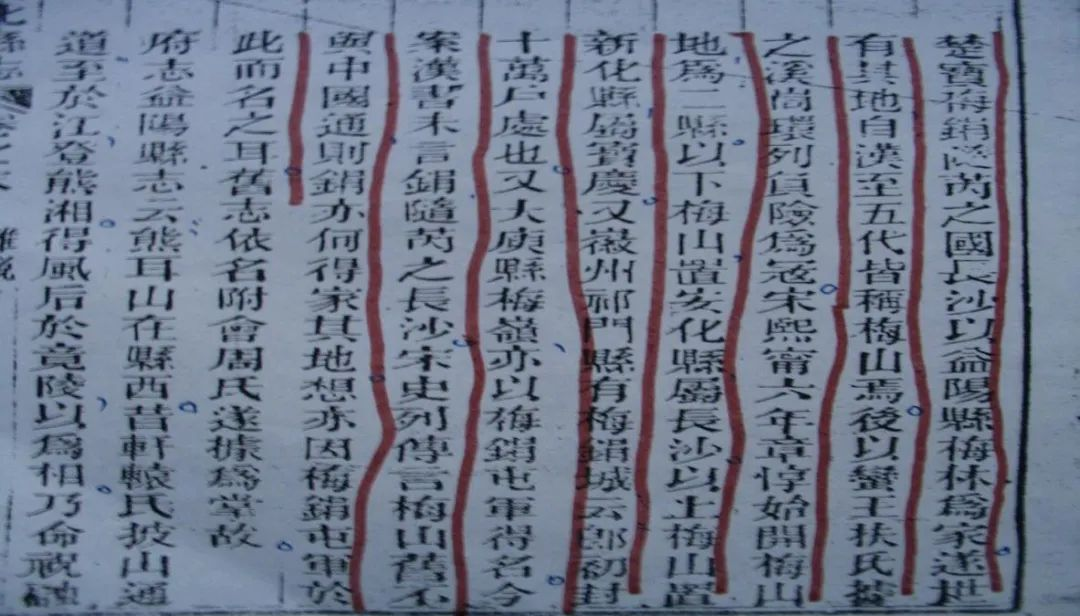 楚寶梅鋗從芮之國長沙以益陽縣梅林爲家遂世
有其地自漢至五代皆稱梅山焉後以蠻王扶氏據
之溪峒環列負險爲寇宋熙甯六年章惇始開梅山
地爲二縣以下梅山置安化縣屬長沙以上梅山置
新化縣屬寶慶又徽州祁門縣有梅鋗城云郎初封
十萬戶處也又大庾縣梅嶺亦以梅鋗屯軍得名今
案漢書未言鋗隨芮之長沙宋史列傳言梅山舊不
與中國通則鋗亦何得家其地想亦因梅鋗屯軍於
此而名之耳舊志依名附會周氏遂據爲掌故
府志益陽縣志云熊耳山在縣西昔軒轅氏披山通
道至於江登熊湘得風后於竟陵以爲相乃命祝融
縣志